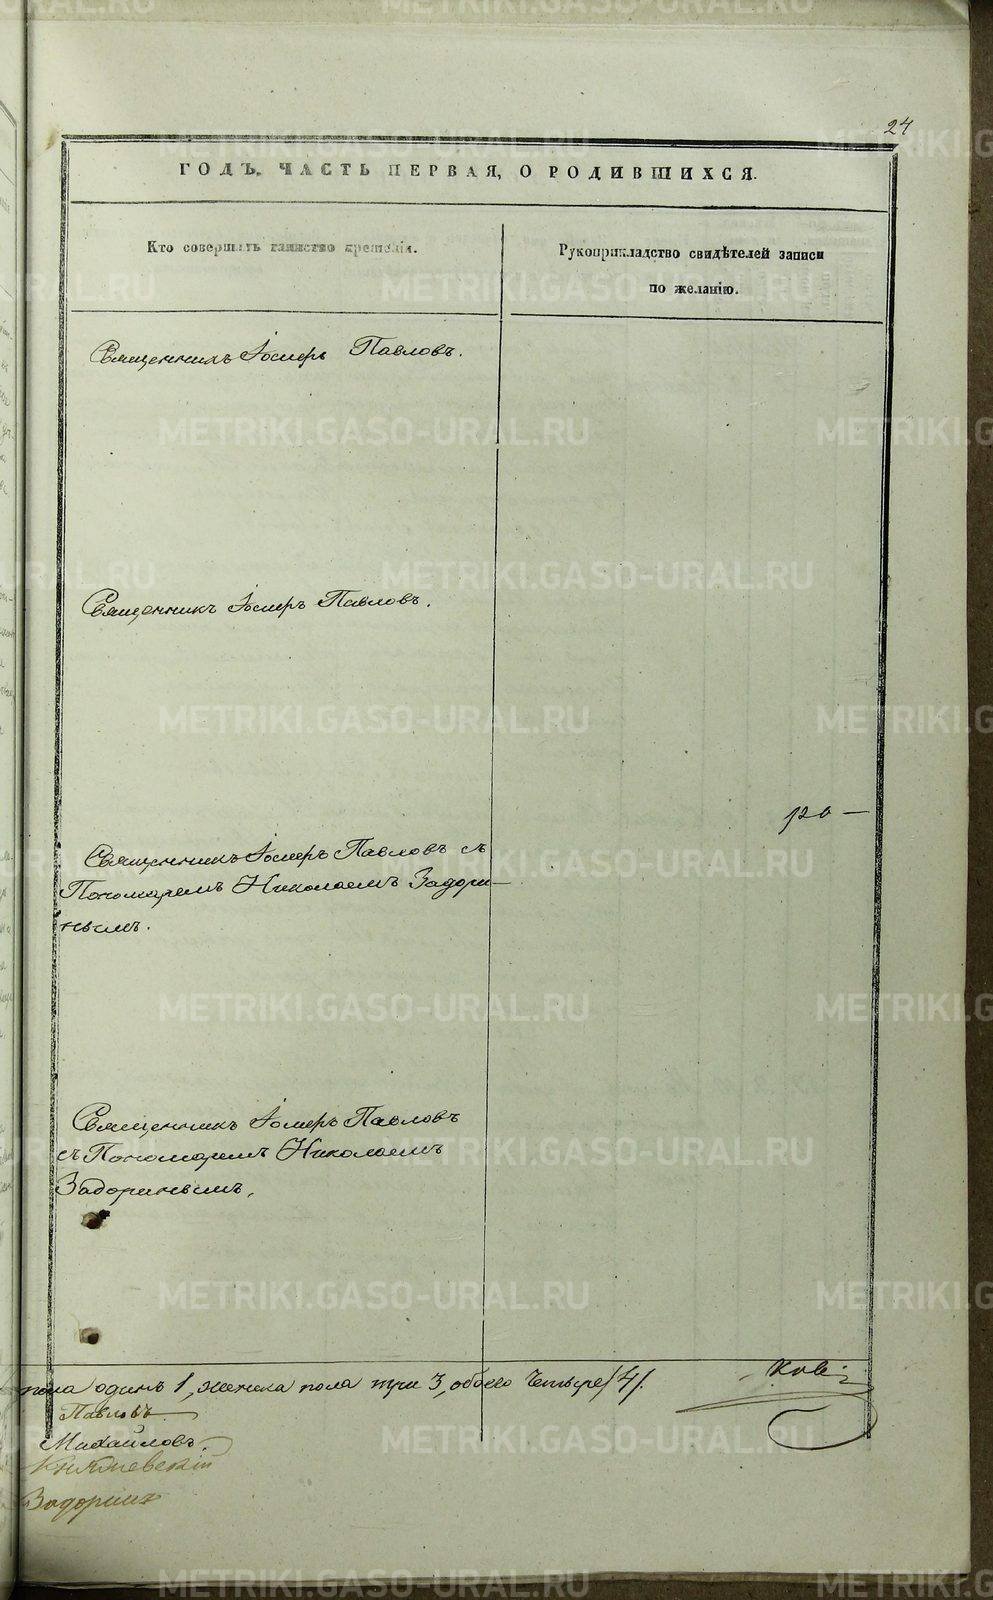 24
ГОДЪ. ЧАСТЬ ПЕРВАЯ, О РОДИВШИХСЯ.
Кто совершалъ таинство крещенія.
Рукоприкладство свидѣтелей записи
по желанію.
Священникъ Павловъ.
Священникъ Павловъ.
Священникъ Павловъ съ
Пономаремъ Николаемъ Задори-
нымъ.
Священникъ Павловъ
съ Пономаремъ Николаемъ
Задоринымъ.
пола одинъ 1, женска пола три 3, обоего четыре /4/.
Павловъ
Михайловъ.
Княжевскій
Задоринъ
METRIKI.GASO-URAL.RU